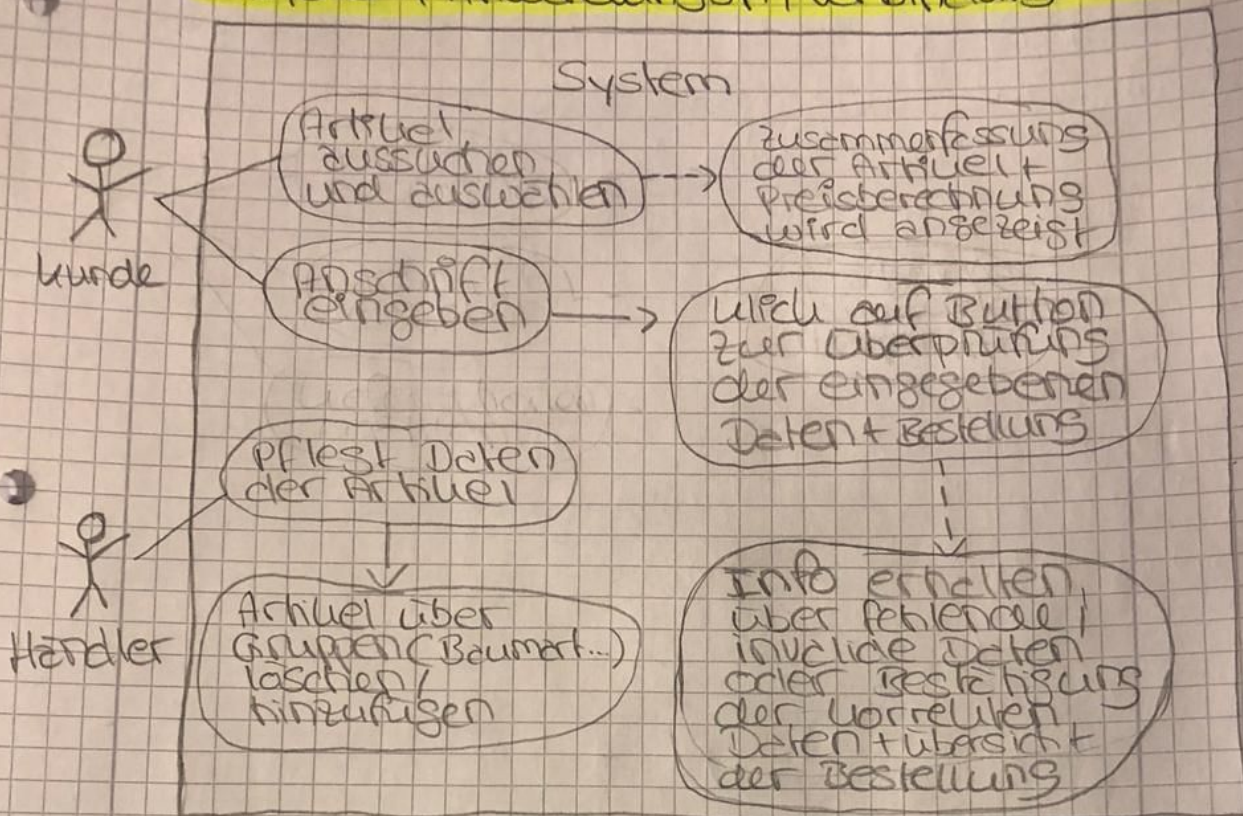 System
Artikel
aussuchen
und auswählen
Zusammenfassung
der Artikel +
Preisberechnung
wird angezeigt
Kunde
Anschrift
eingeben
Klick auf Button
zur Überprüfung
der eingegebenen
Daten + Bestellung
pflegt Daten
der Artikel
Händler
Artikel über
Gruppen (Baumart...)
löschen/
hinzufügen
Info erhalten,
über fehlende/
invalide Daten
oder Bestätigung
der korrekten
Daten + Übersicht
der Bestellung